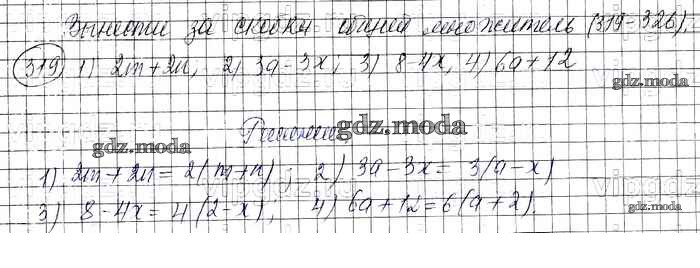 Вынести за скобки общий множитель (319-326).
319) 1) 2m+2n, 2) 3a-3x; 3) 8-4x, 4) 6a+12
gdz.moda
Решение. gdz.moda
gdz.moda
1) 2m+2n=2(m+n); 2) 3a-3x=3(a-x)
3) 8-4x=4(2-x); 4) 6a+12=6(a+2).
gdz.moda